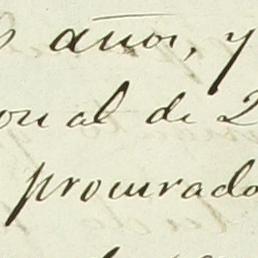 años, y
al de 2
procurado